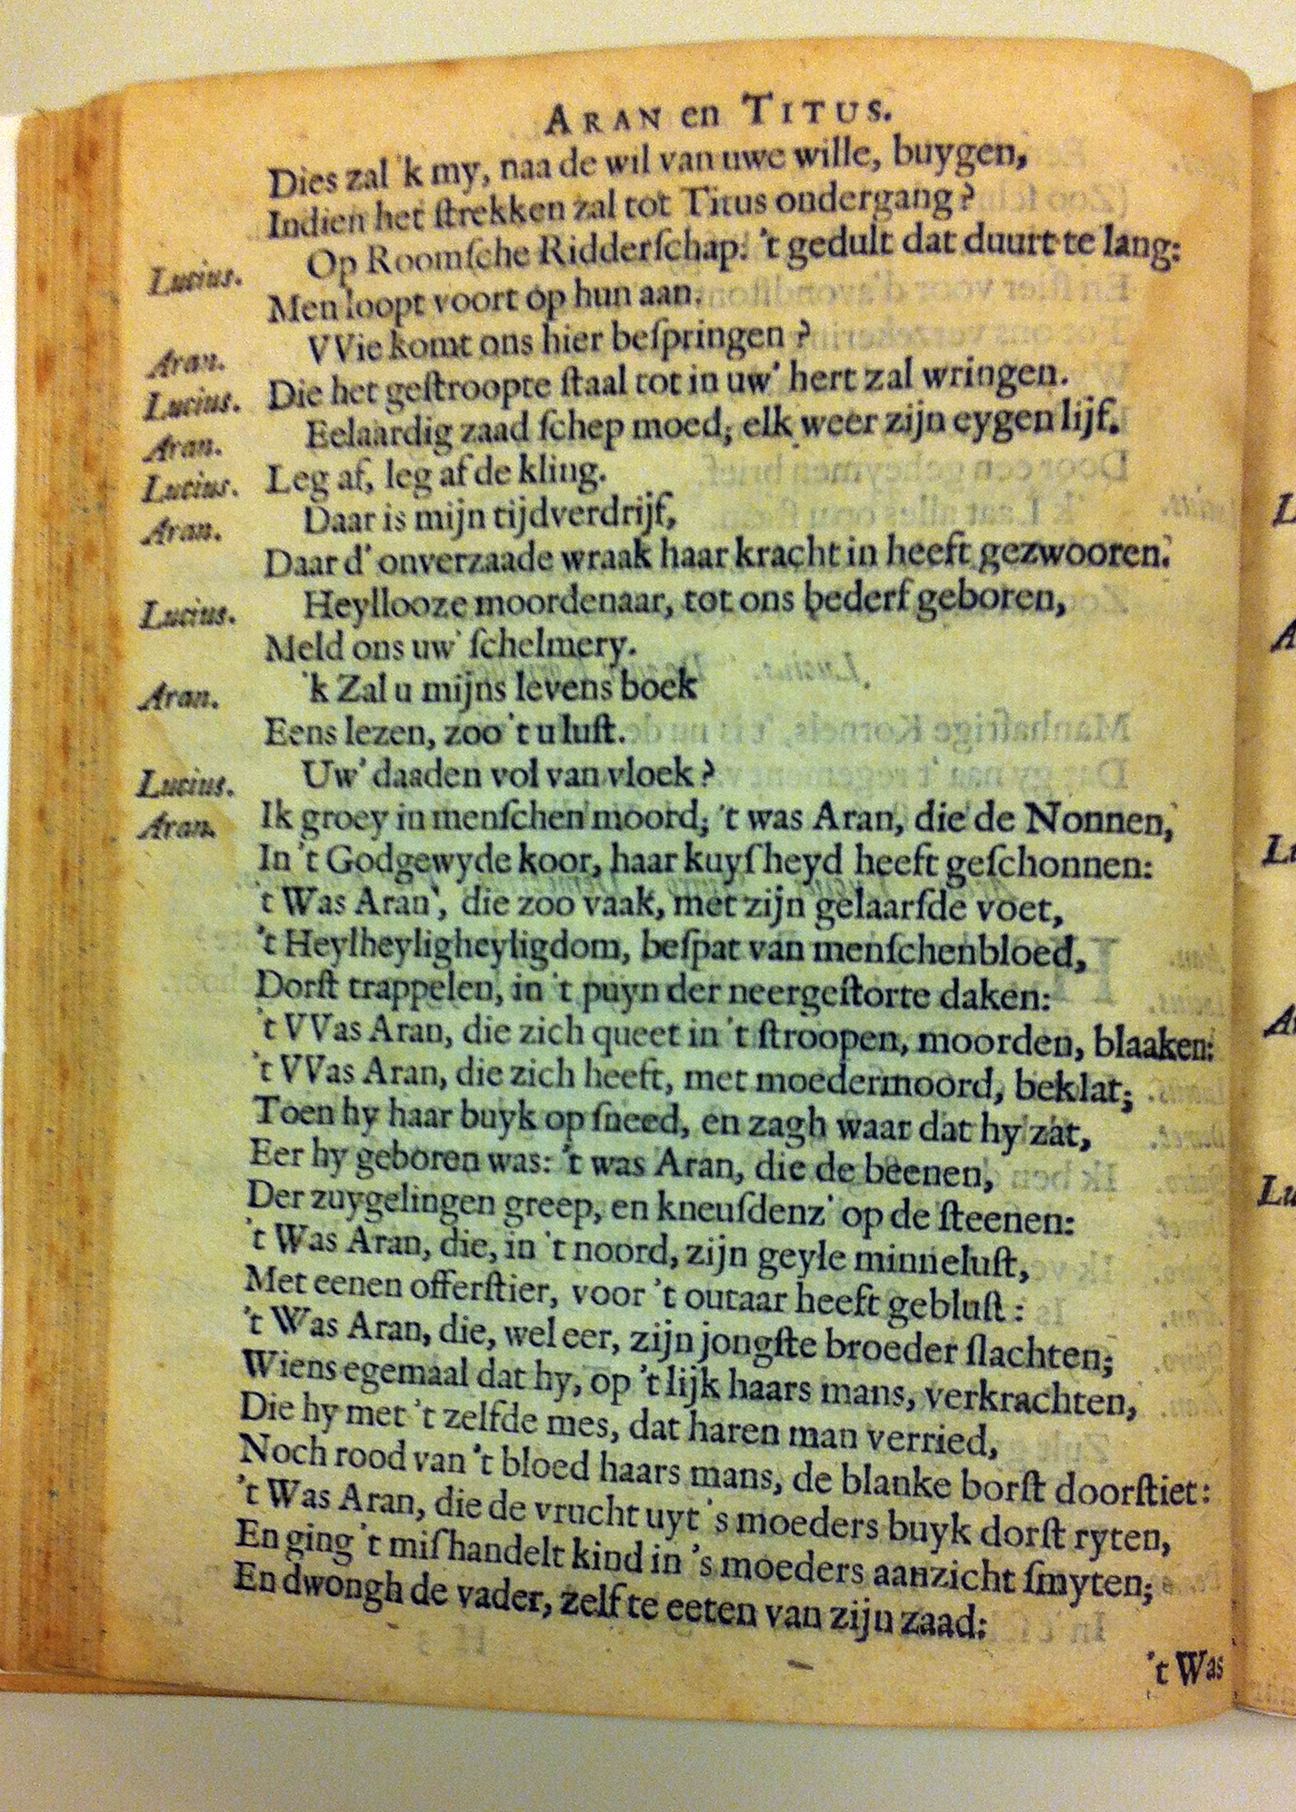 ARAN en TITUS.
Dies zal 'k my, naa de wil van uwe wille, buygen,
Indien het ſtrekken zal tot Titus ondergang?
Lucius. Op Roomſche Ridderſchap. 't gedult dat duurt te lang:
Men loopt voort op hun aan.
Aran. VVie komt ons hier beſpringen?
Lucius. Die het geſtroopte ſtaal tot in uw' hert zal wringen.
Aran. Eelaardig zaad ſchep moed, elk weer zijn eygen lijf.
Lucius. Leg af, leg af de kling.
Aran. Daar is mijn tijdverdrijf,
Daar d' onverzaade wraak haar kracht in heeft gezwooren.
Lucius. Heyllooze moordenaar, tot ons bederf geboren,
Meld ons uw' ſchelmery.
Aran. 'k Zal u mijns levens boek
Eens lezen, zoo 't u luſt.
Lucius. Uw' daaden vol van vloek?
Aran. Ik groey in menſchen moord; 't was Aran, die de Nonnen,
In 't Godgewyde koor, haar kuyſheyd heeft geſchonnen:
't Was Aran, die zoo vaak, met zijn gelaarſde voet,
't Heylheyligheyligdom, beſpat van menſchenbloed,
Dorſt trappelen, in 't puyn der neergeſtorte daken:
't VVas Aran, die zich queet in 't ſtroopen, moorden, blaaken:
't VVas Aran, die zich heeft, met moedermoord, beklat;
Toen hy haar buyk op ſneed, en zagh waar dat hy zat,
Eer hy geboren was: 't was Aran, die de beenen,
Der zuygelingen greep, en kneuſdenz' op de ſteenen:
't Was Aran, die, in 't noord, zijn geyle minneluſt,
Met eenen offerſtier, voor 't outaar heeft gebluſt:
't Was Aran, die, wel eer, zijn jongſte broeder ſlachten;
Wiens egemaal dat hy, op 't lijk haars mans, verkrachten,
Die hy met 't zelfde mes, dat haren man verried,
Noch rood van 't bloed haars mans, de blanke borſt doorſtiet:
't Was Aran, die de vrucht uyt 's moeders buyk dorſt ryten,
En ging 't miſhandelt kind in 's moeders aanzicht ſmyten;
En dwongh de vader, zelf te eeten van zijn zaad:
't Was